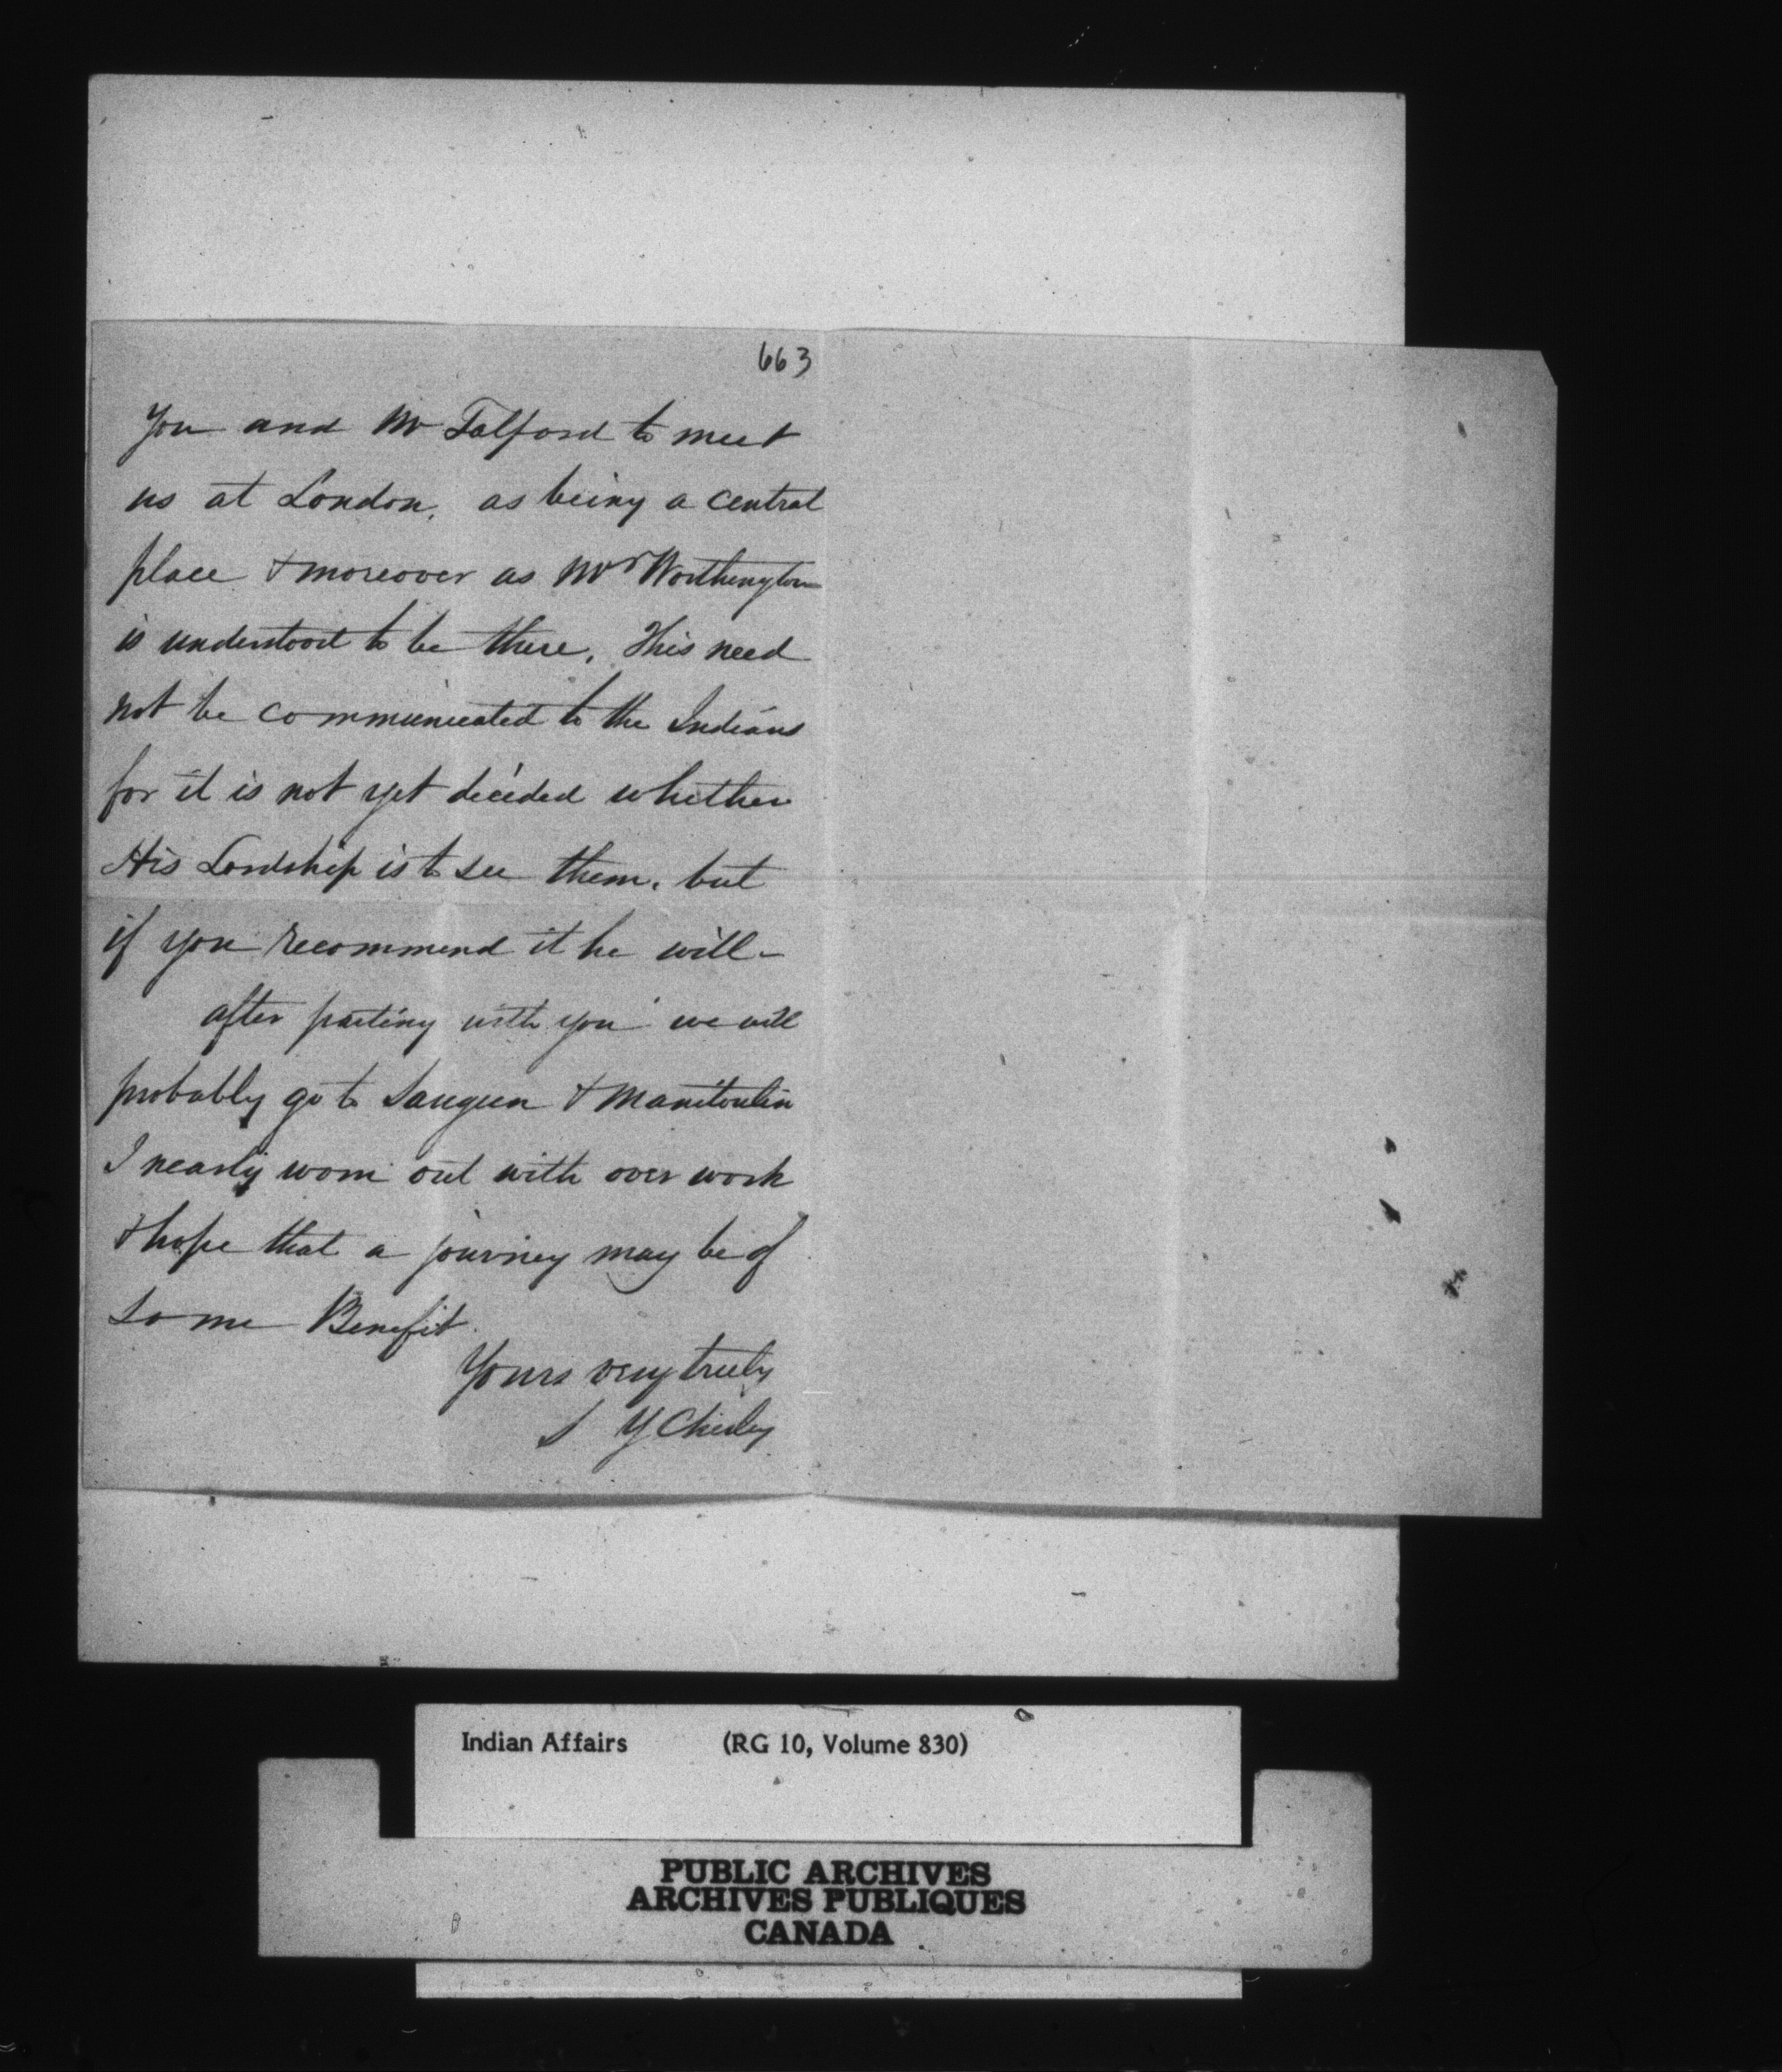 663
You and Mr Talford to meet
us at London, as being a central
place & moreover as Mr Worthington
is understood to be there. This need
not be communicated to the Indians
for it is not yet decided whether
His Lordship is to see them, but
if you recommend it he will -
after parting with you we will
probably go to Saugeen & Manitoulin
I nearly worn out with over work
& hope that a journey may be of
some Benefit.
Yours very truly
S Y Chesley
Indian Affairs (RG 10, Volume 830)
PUBLIC ARCHIVES
ARCHIVES PUBLIQUES
CANADA